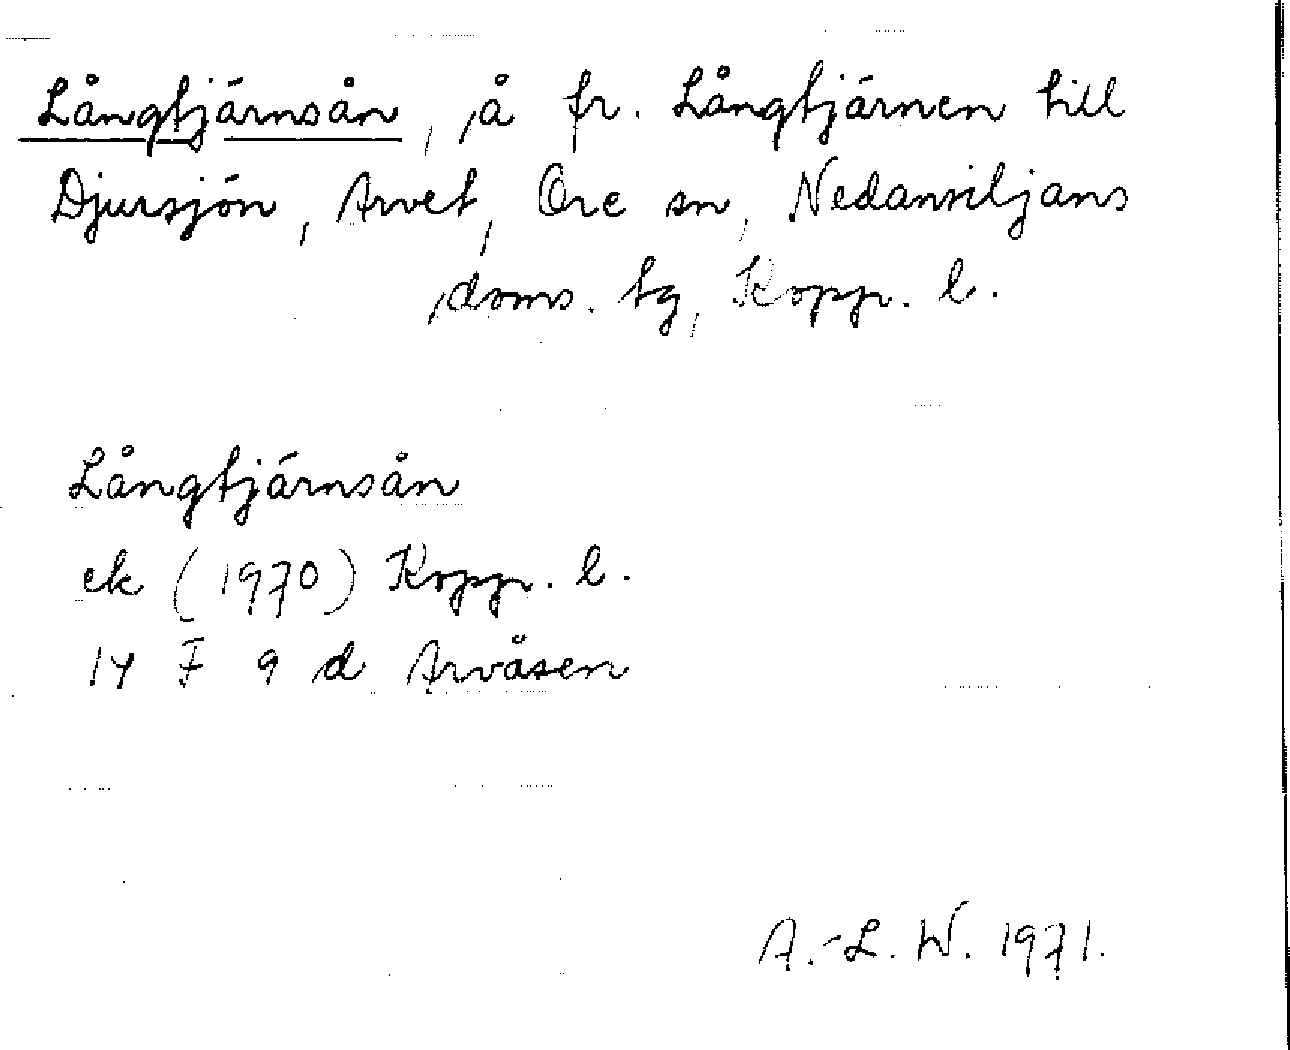 Långtjärnsån, å fr. Långtjärnen till
Djursjön, Arvet, Ore sn, Nedansiljans
doms. tg, Kopp. l.
Långtjärnsån
ek (1970) Kopp. l.
14 F 9 d Arvåsen
A.-L. W. 1971.